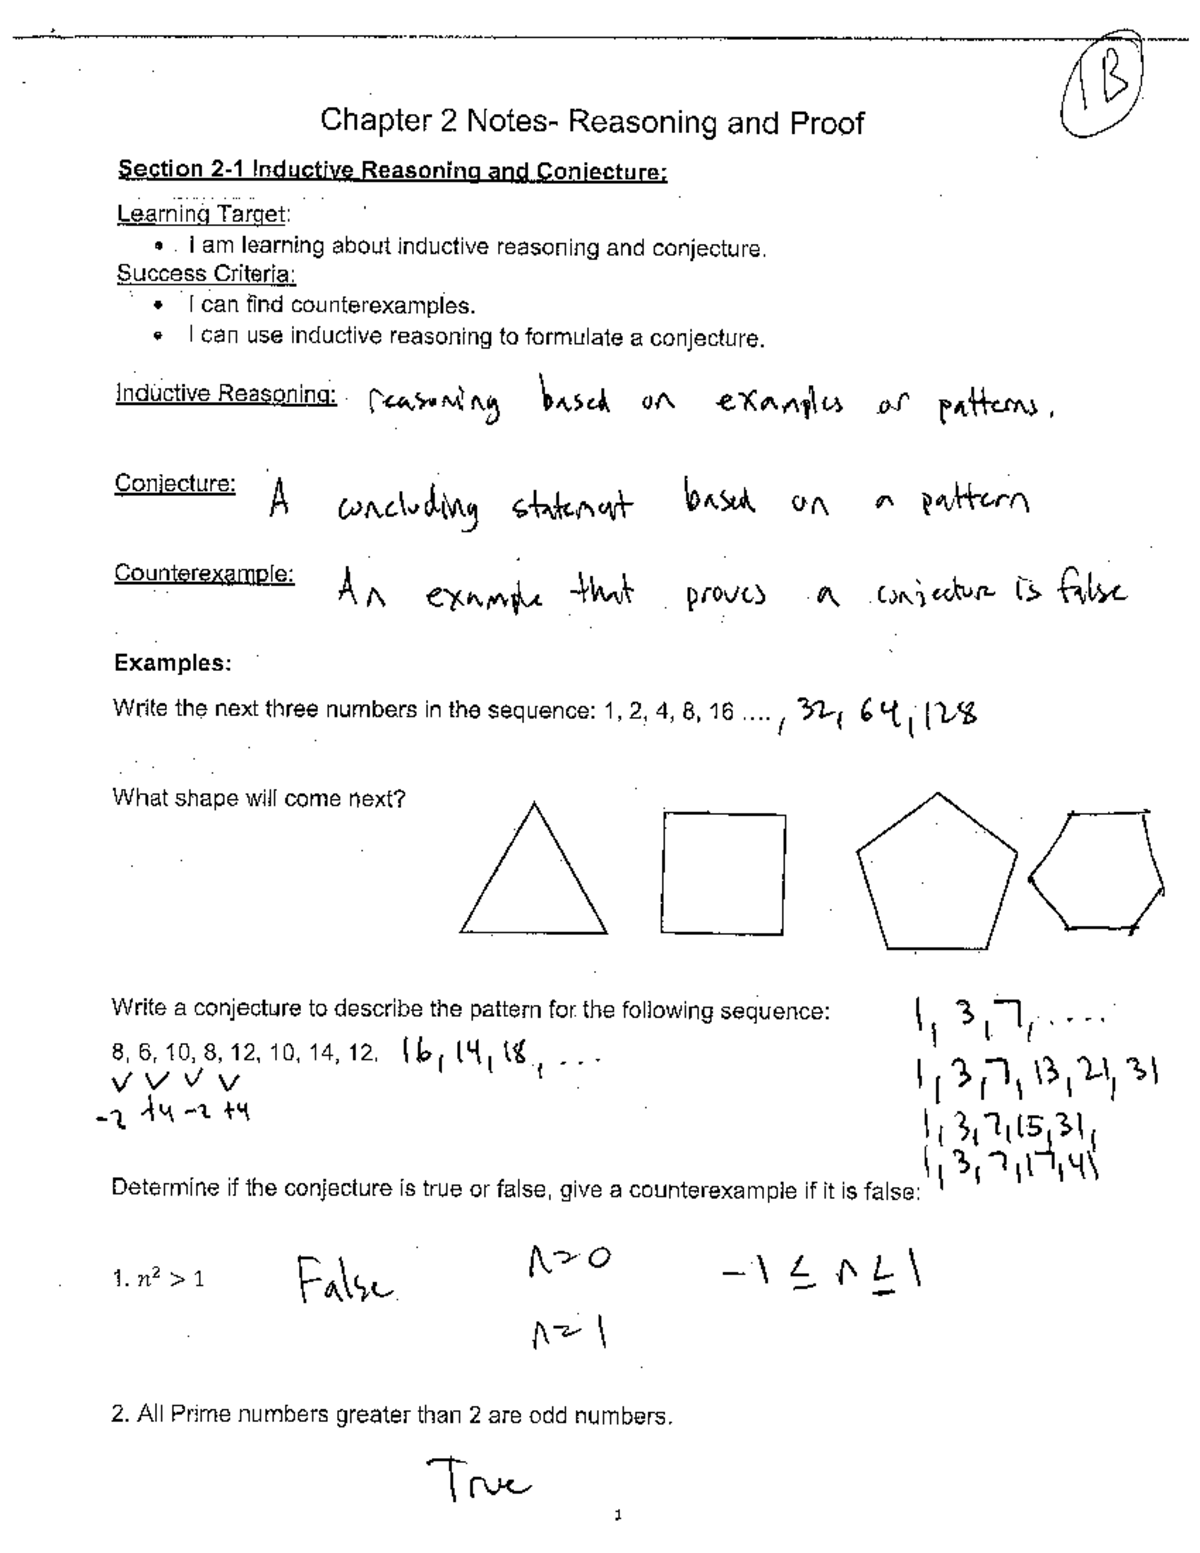 1B
Chapter 2 Notes- Reasoning and Proof
Section 2-1 Inductive Reasoning and Conjecture:
Learning Target:
• I am learning about inductive reasoning and conjecture.
Success Criteria:
• I can find counterexamples.
• I can use inductive reasoning to formulate a conjecture.
Inductive Reasoning: reasoning based on examples or patterns.
Conjecture: A concluding statement based on a pattern
Counterexample: An example that proves a conjecture is false
Examples:
Write the next three numbers in the sequence: 1, 2, 4, 8, 16 ...., 32, 64, 128
What shape will come next?
Write a conjecture to describe the pattern for the following sequence:
1, 3, 7, ....
8, 6, 10, 8, 12, 10, 14, 12, 16, 14, 18, ...
1, 3, 7, 13, 21, 31
-2 +4 -2 +4
1, 3, 7, 15, 31,
1, 3, 7, 17, 41
Determine if the conjecture is true or false, give a counterexample if it is false:
1. n² > 1 False n=0 -1 ≤ n ≤ 1
n=1
2. All Prime numbers greater than 2 are odd numbers.
True
1